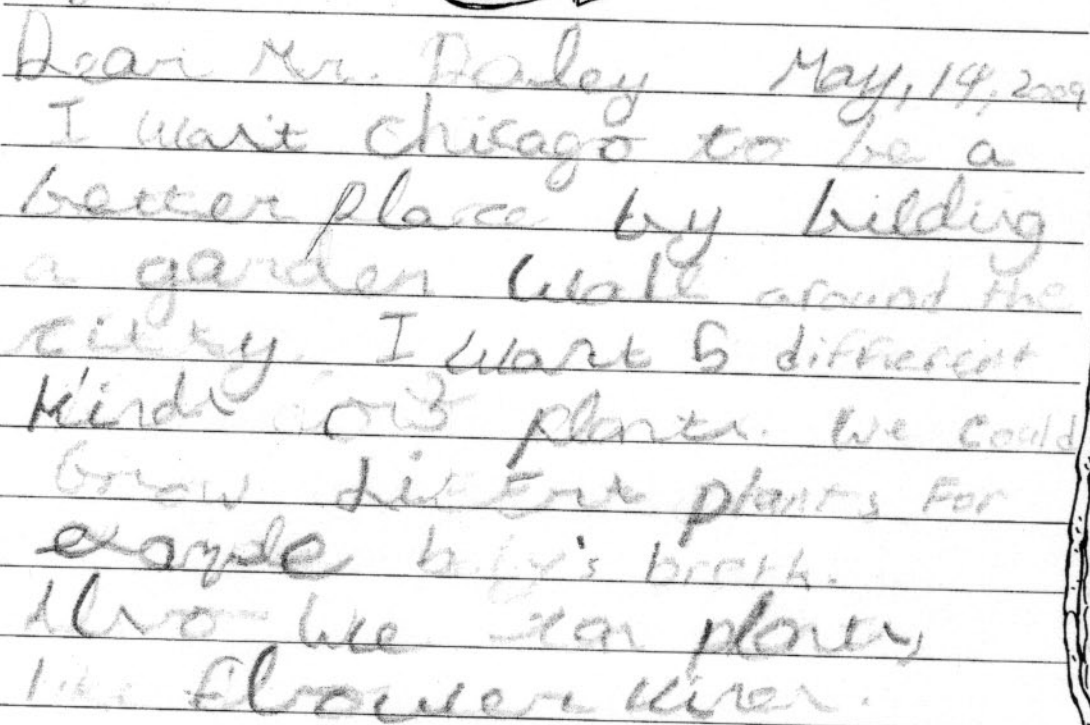 Dear Mr. Daley May, 14, 2009
I want chicago to be a
better place by bilding
a garden walk around the
citty. I want 5 different
Kinds of plants. We could
Grow plants For
example baby's breth.
Also we can plant
like flower